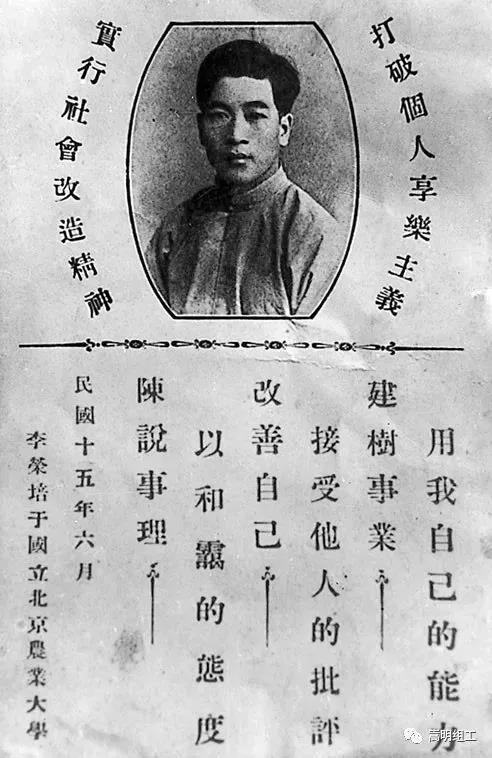 打破個人享樂主義
實行社會改造精神
用我自己的能力
建樹事業
接受他人的批評
改善自己
以和靄的態度
陳說事理
民國十五年六月
李榮培于國立北京農業大學
嵩明组工